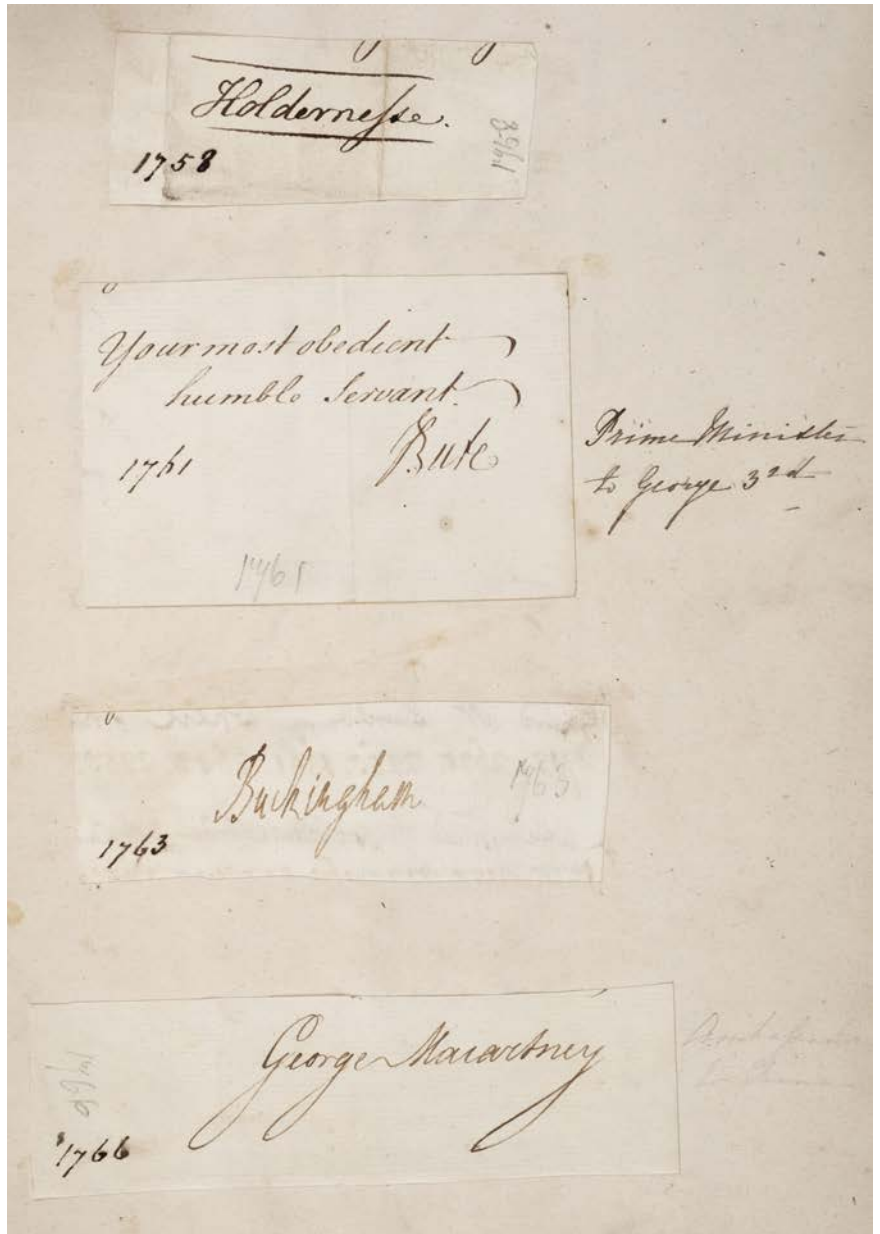 Holderneſse.
1758
1758
Your most obedient
humble Servant.
Bute
1761
1761
Prime Minister
to George 3rd
Buckingham
1763
1763
George Macartney
1766
1766
to